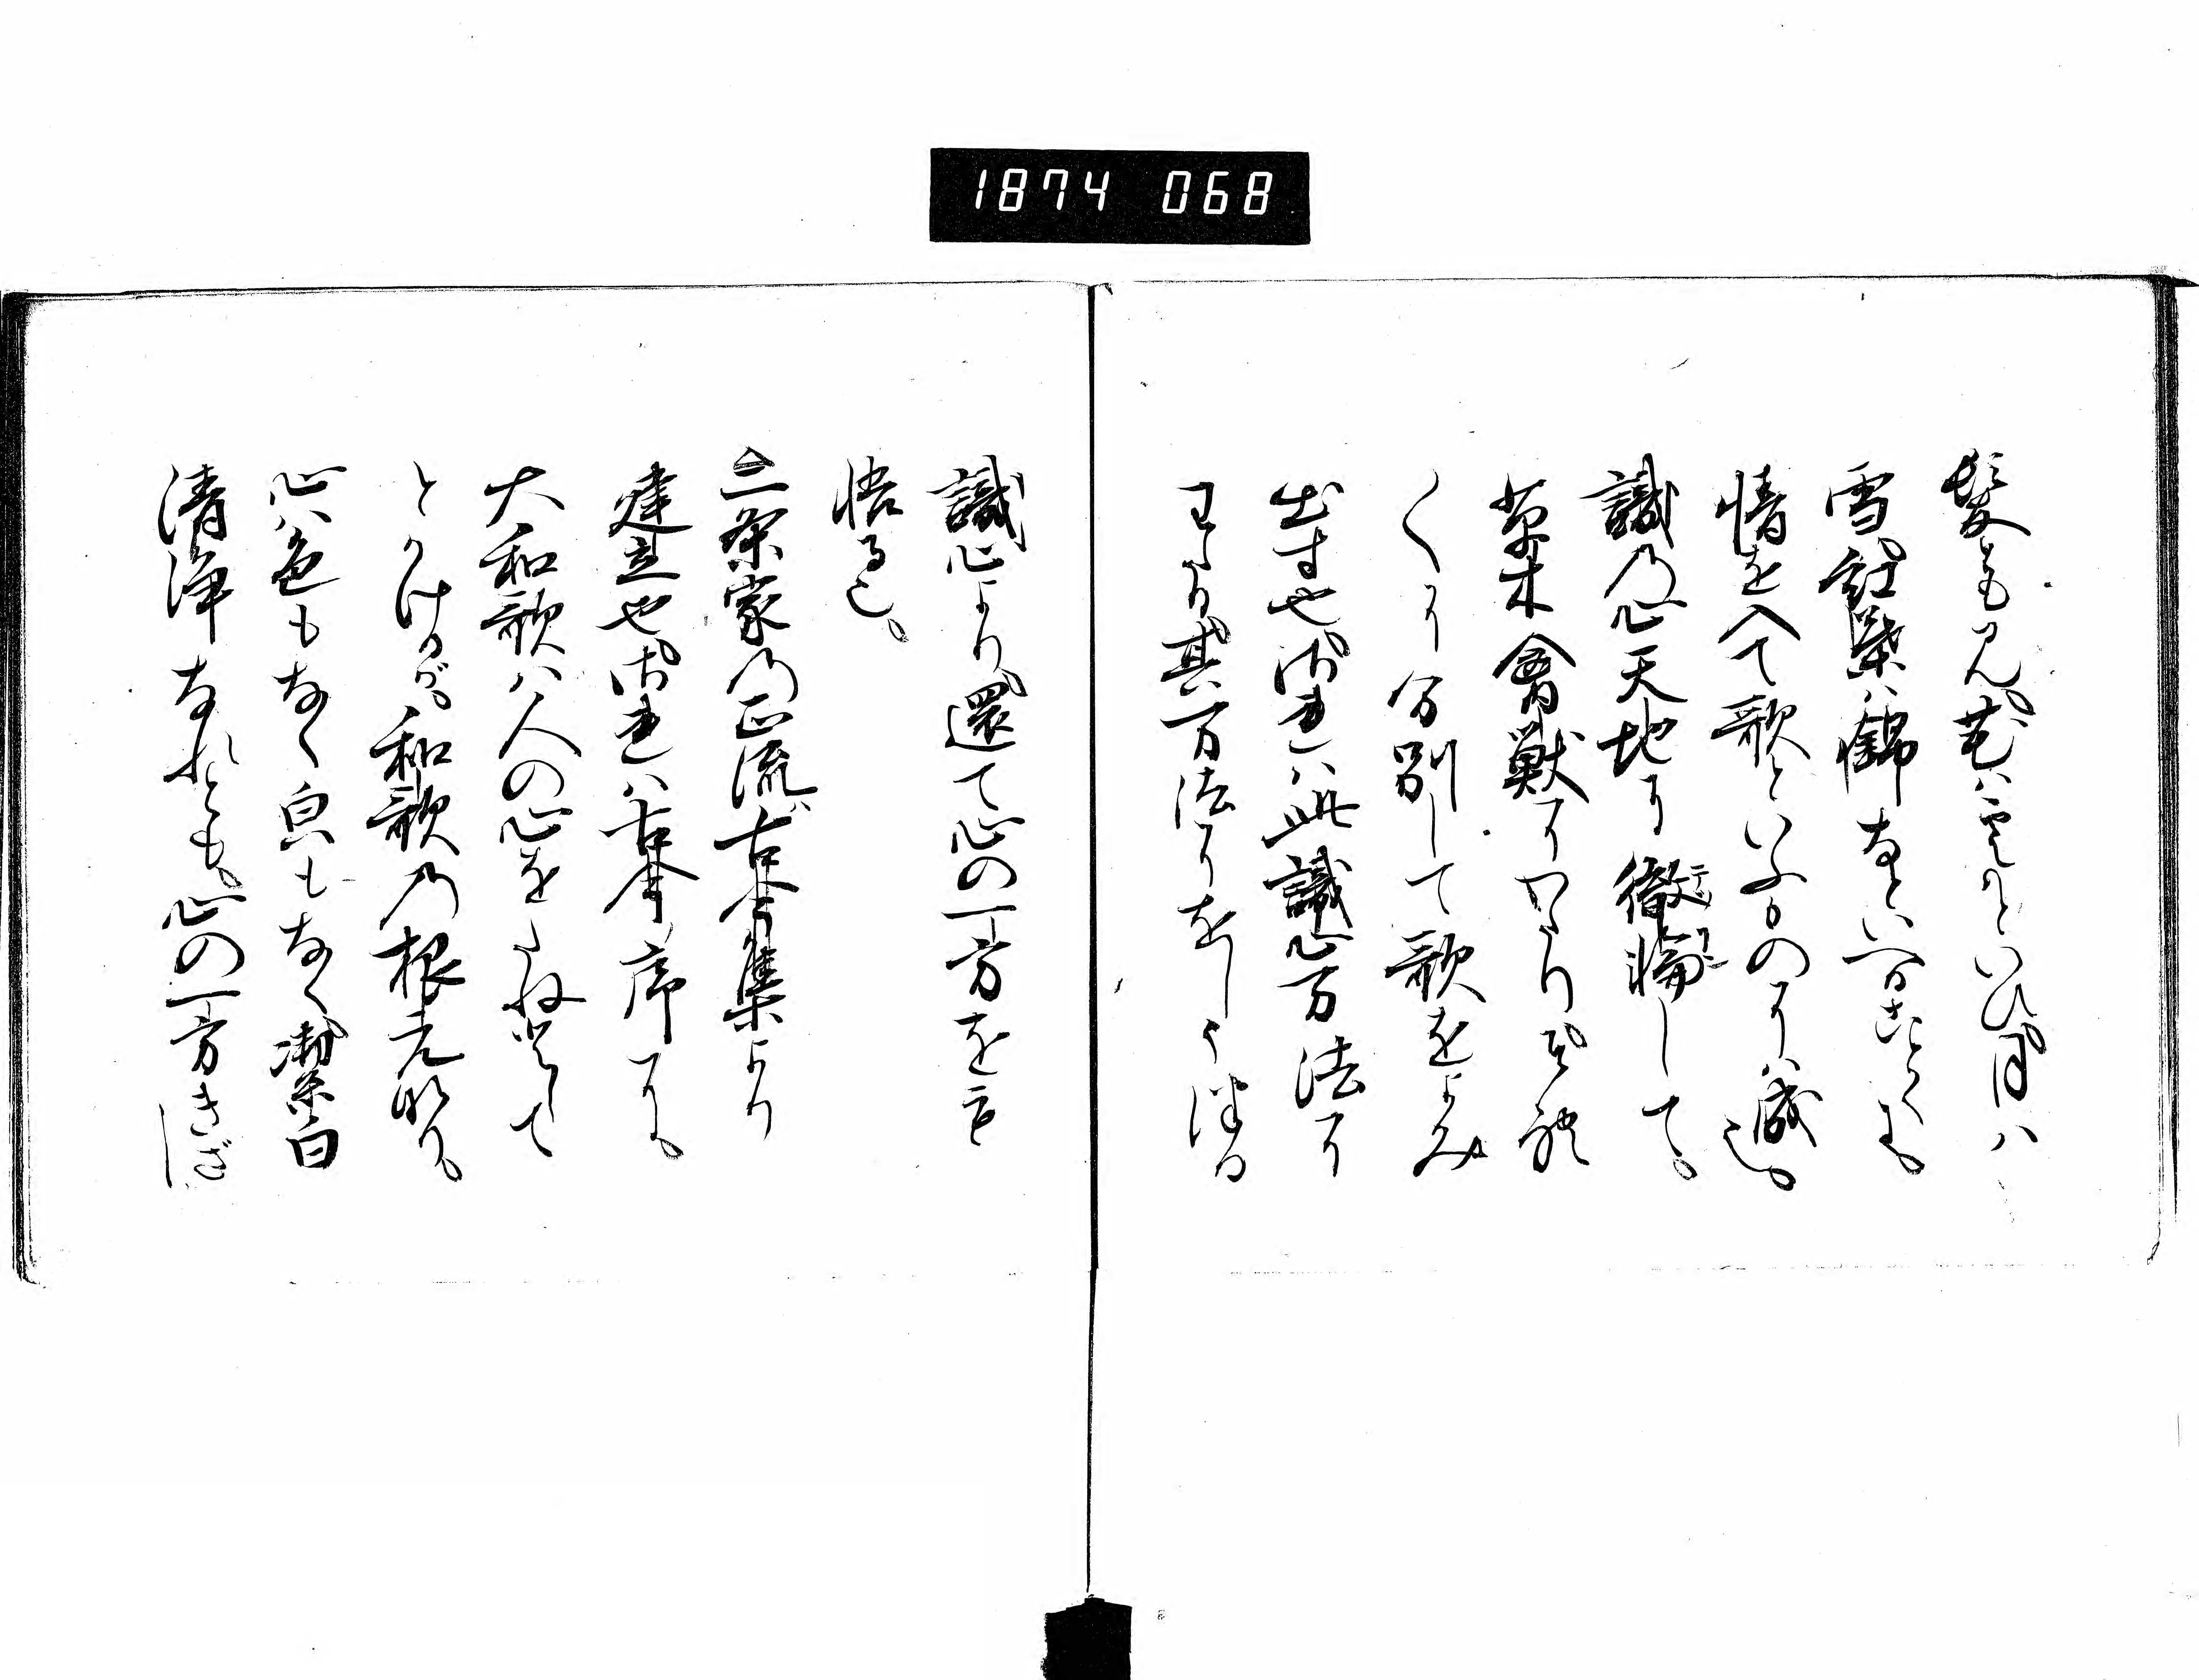 1874 068
髪とも見、花ハ雲かといひ、月ハ
雪、紅葉ハ錦なといへることくに、
情を入て歌といふものに成也。
識乃心天地に徹悩して、
草木禽獣にわたり
くに分別して歌をよみ
出す也、されハ此識心万法に
わたり、其万法に
識心より、還て心の一方を
悟る也、
二条家乃正流ハ古今集より
建立也、されハ古今序に、
大和歌ハ人の心をたねとして
とかけるが、和歌乃根元なり、
心ハ色もなく臭もなく、潔白
清浄なれとも、心の一方きざし